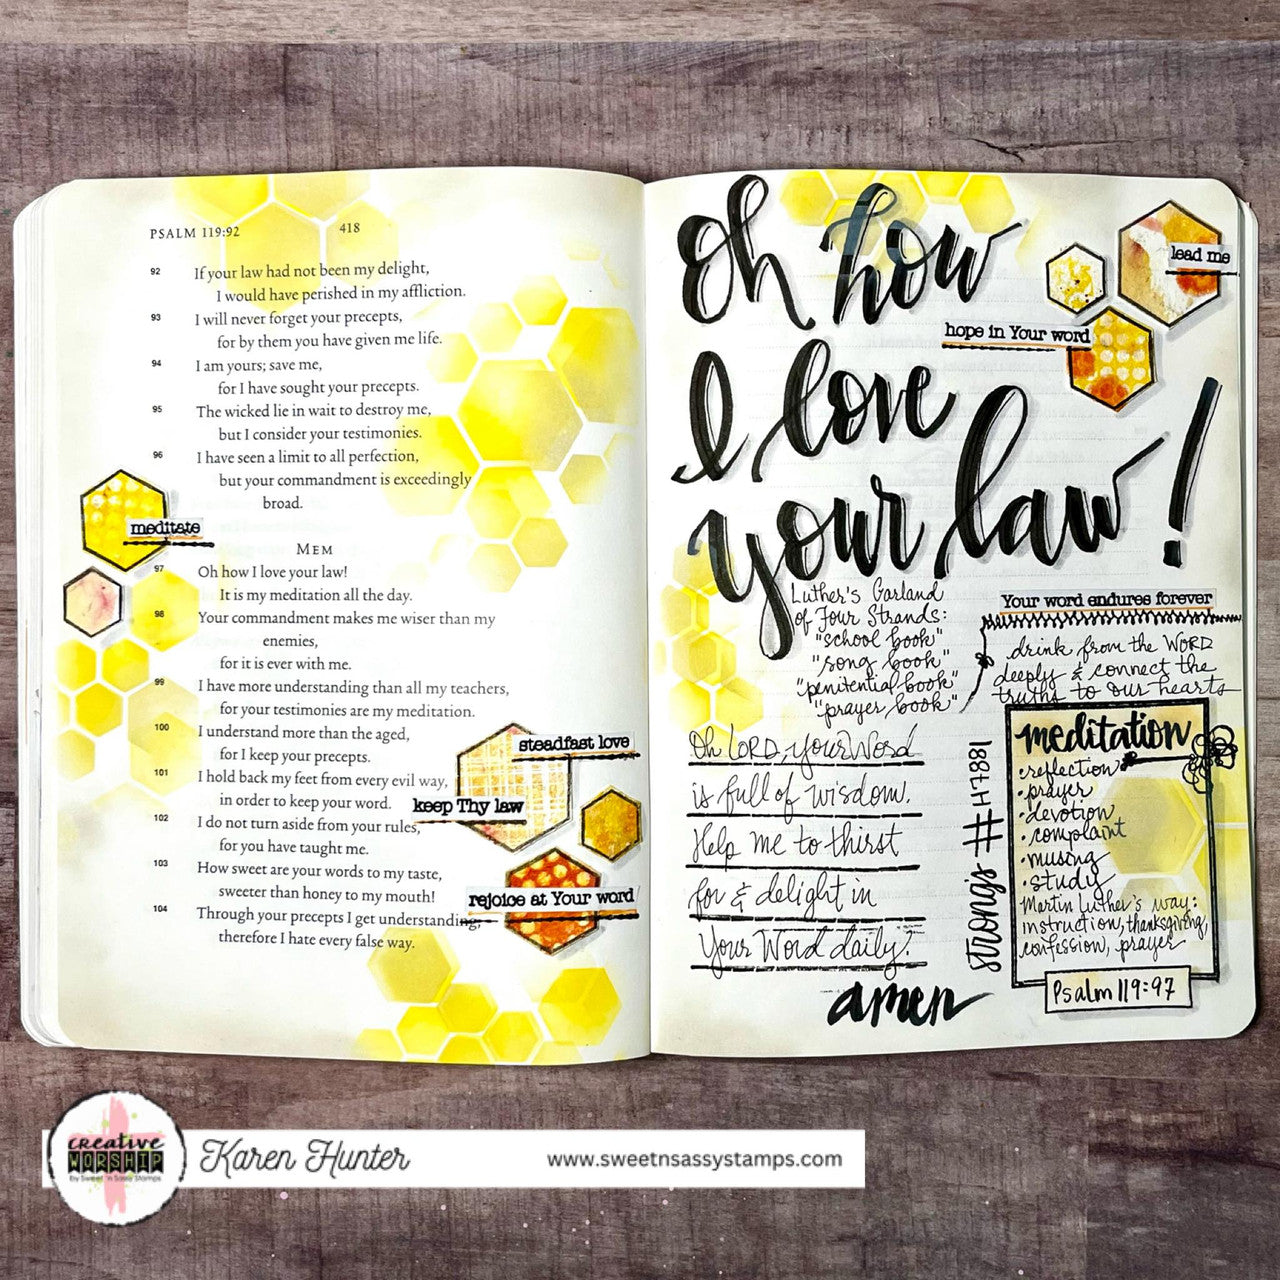 PSALM 119:92 418
92 If your law had not been my delight,
I would have perished in my affliction.
93 I will never forget your precepts,
for by them you have given me life.
94 I am yours; save me,
for I have sought your precepts.
95 The wicked lie in wait to destroy me,
but I consider your testimonies.
96 I have seen a limit to all perfection,
but your commandment is exceedingly
broad.
meditate
MEM
97 Oh how I love your law!
It is my meditation all the day.
98 Your commandment makes me wiser than my
enemies,
for it is ever with me.
99 I have more understanding than all my teachers,
for your testimonies are my meditation.
100 I understand more than the aged,
for I keep your precepts.
101 I hold back my feet from every evil way,
in order to keep your word.
102 I do not turn aside from your rules,
for you have taught me.
103 How sweet are your words to my taste,
sweeter than honey to my mouth!
104 Through your precepts I get understanding;
therefore I hate every false way.
steadfast love
keep Thy law
rejoice at Your word
oh how
I love
your law!
lead me
hope in Your word
Luther's Garland
of Four Strands:
"school book"
"song book"
"penitential book"
"prayer book"
Your word endures forever
drink from the WORD
deeply & connect the
truths to our hearts
Oh LORD, your Word
is full of wisdom.
Help me to thirst
for & delight in
Your Word daily!
amen
strong's #H7881
meditation
•reflection
•prayer
•devotion
•complaint
•musing
•study
Martin Luther's way:
instruction, thanksgiving,
confession, prayer
Psalm 119:97
creative
WORSHIP
by Sweet 'n Sassy Stamps
Karen Hunter
www.sweetnsassystamps.com